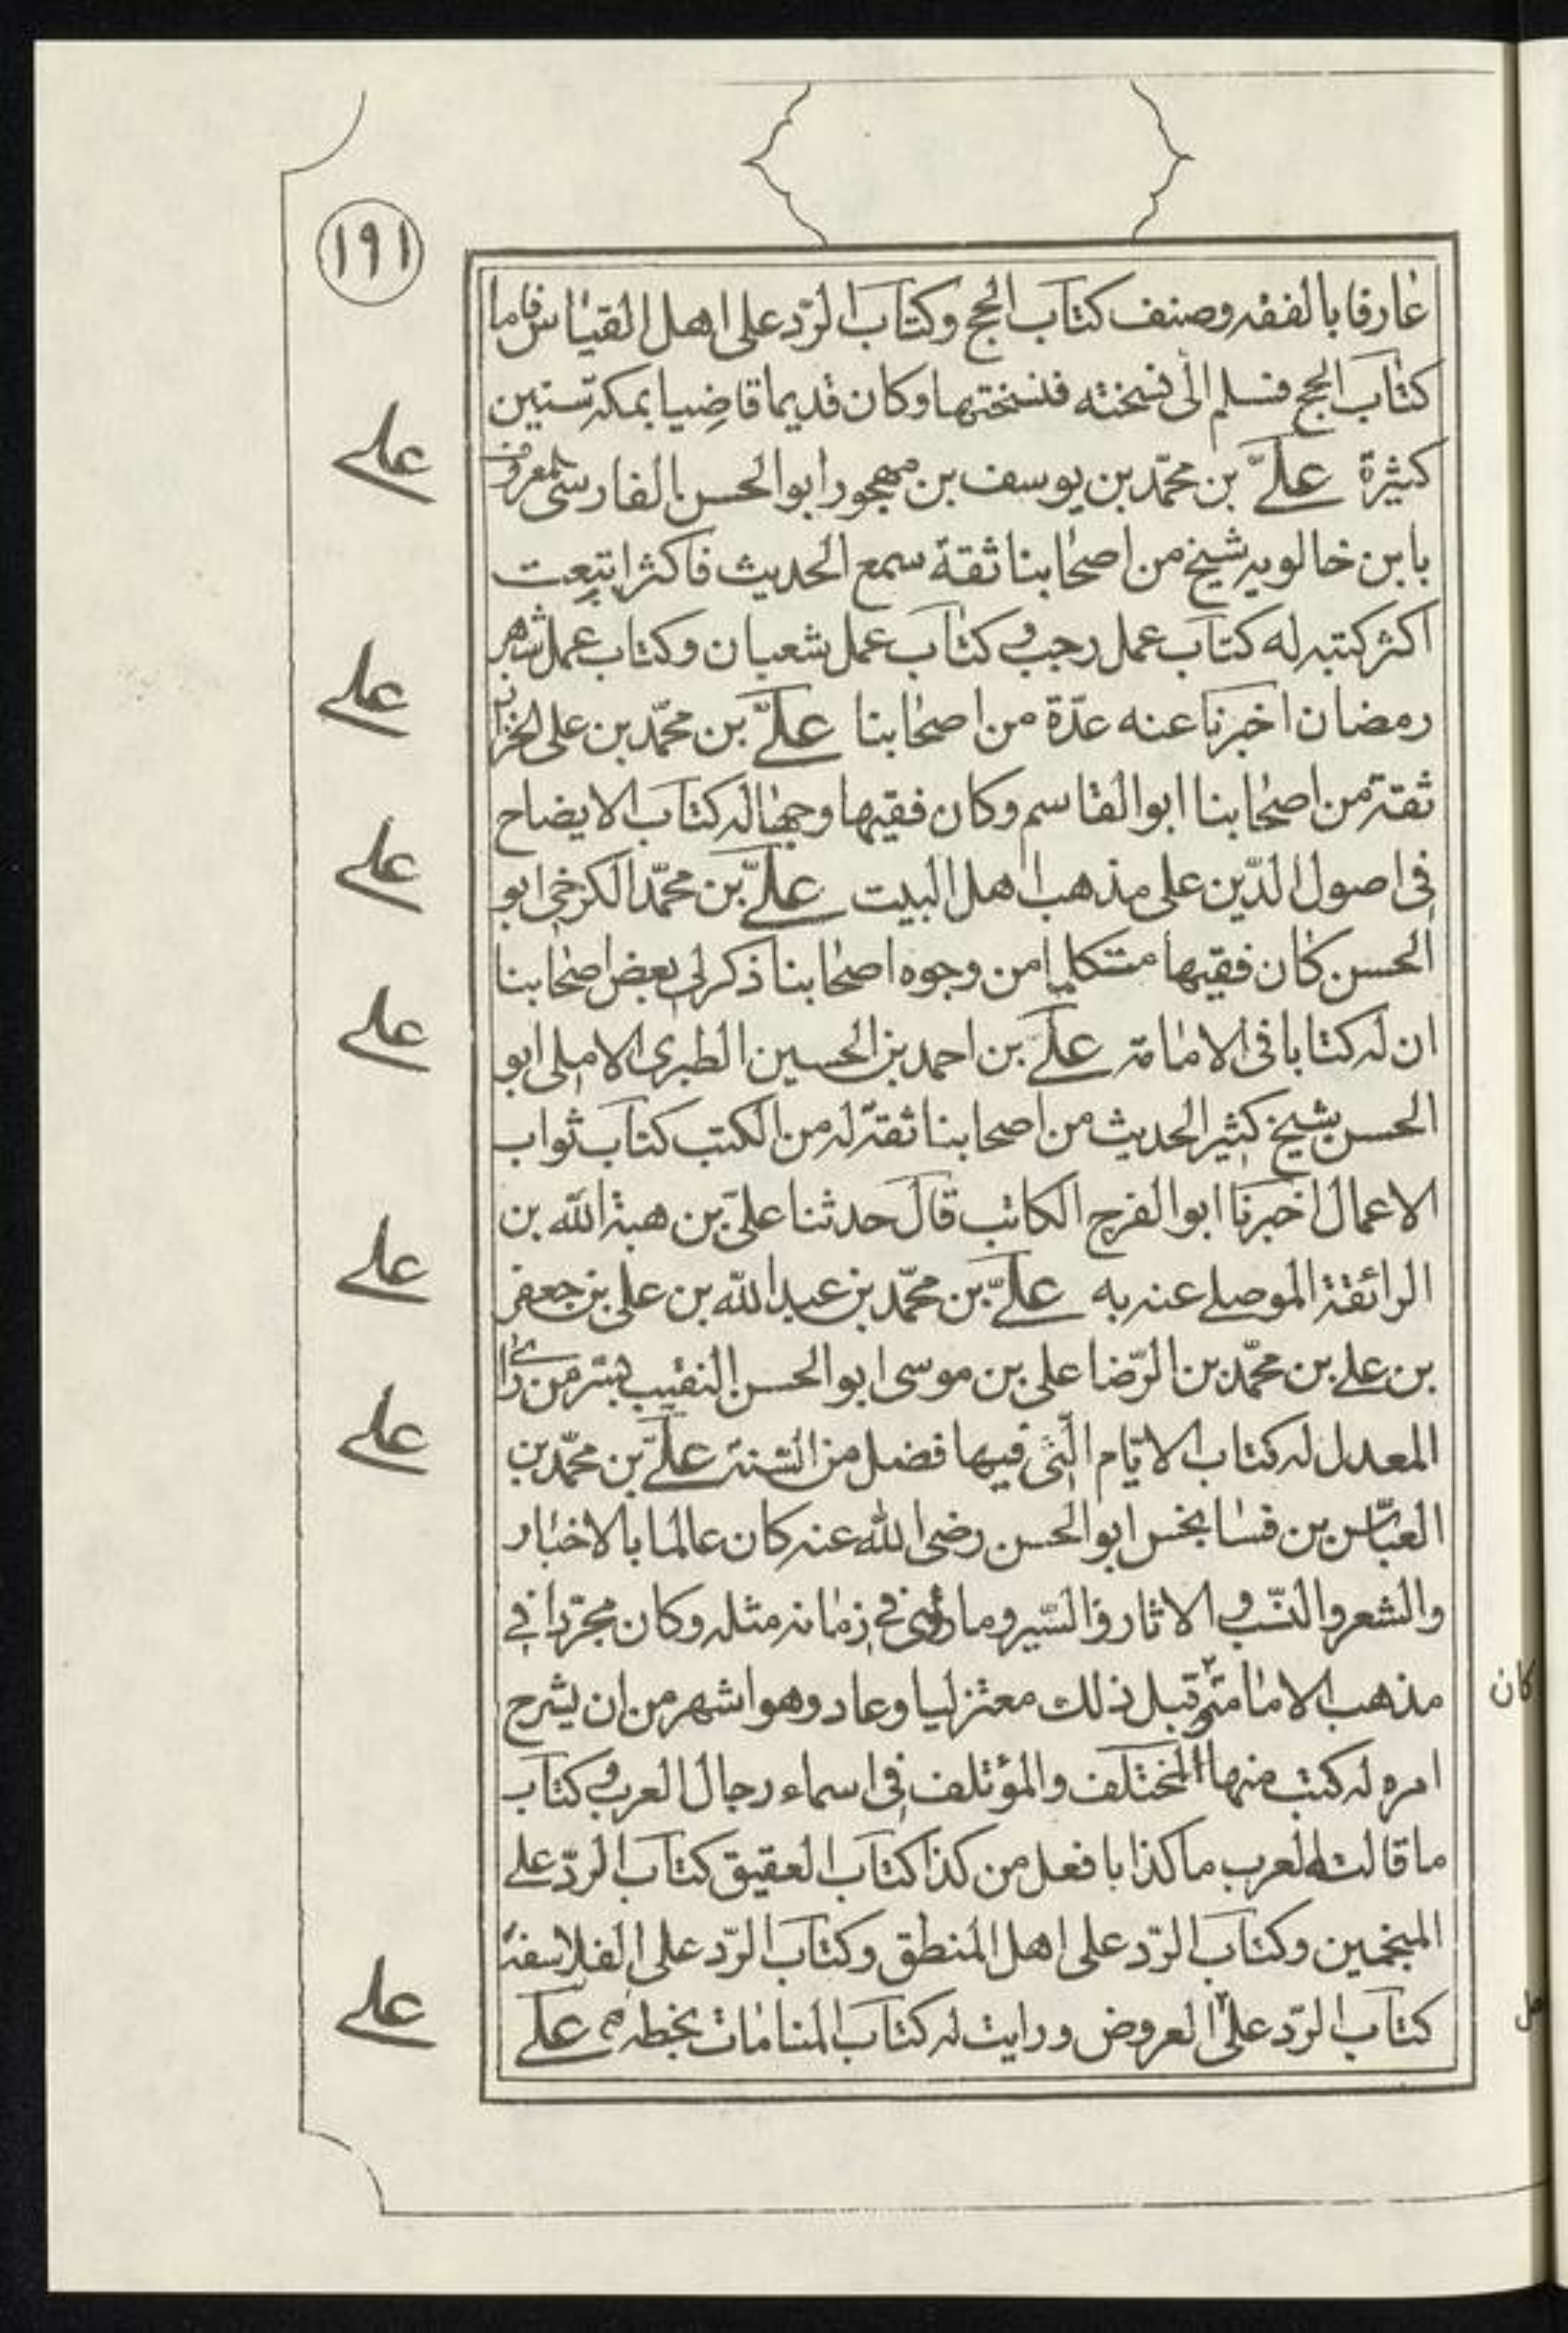 ١٩١
عارفا بالفقه وصنف كتاب الحج وكتاب الرّد على اهل القياس فاما
كتاب الحج فسلم الى نسخته فنسختها وكان قديما قاضيا بمكة سنين
كثيرة علىّ بن محمّد بن يوسف بن مهجور ابو الحسن الفارسى المعروف
بابن خالويه شيخ من اصحابنا ثقة سمع الحديث فاكثر ابتعت
اكثر كتبه له كتاب عمل رجب و كتاب عمل شعبان وكتاب عمل شهر
رمضان اخبرنا عنه عدّة من اصحابنا علىّ بن محمّد بن على الخزاز
ثقة من اصحابنا ابو القاسم وكان فقيها وجها له كتاب الايضاح
فى اصول الدّين على مذهب اهل البيت علىّ بن محمّد الكرخى ابو
الحسن كان فقيها متكلما من وجوه اصحابنا ذكر لى بعض اصحابنا
ان له كتابا فى الامامة علىّ بن احمد بن الحسين الطبرى الاملى ابو
الحسن شيخ كثير الحديث من اصحابنا ثقة له من الكتب كتاب ثواب
الاعمال اخبرنا ابو الفرج الكاتب قال حدثنا علىّ بن هبة الله بن
الرائقة الموصلى عنه به علىّ بن محمّد بن عبد الله بن على بن جعفر
بن على بن محمّد بن الرّضا على بن موسى ابو الحسن النقيب بسر من راى
المعدل له كتاب الايّام الّتى فيها فضل من السّنة علىّ بن محمّد بن
العبّاس بن فسانجس ابو الحسن رضى الله عنه كان عالما بالاخبار
والشعر والنسب و الاثار والسّير وما رؤى فى زمانه مثله وكان مجرّدا فى
مذهب الامامية و قبل ذلك معتزليا وعاد وهو اشهر من ان يشرح
كان
امره له كتب منها المختلف والمؤتلف فى اسماء رجال العرب و كتاب
ما قالته العرب ما كذا بافعل من كذا كتاب العقيق كتاب الرّد على
المنجمين وكتاب الرّد على اهل المنطق وكتاب الرّد على الفلاسفة
كتاب الرّد على العروض ورايت له كتاب المنامات بخطه علىّ
على
على
على
على
على
على
على